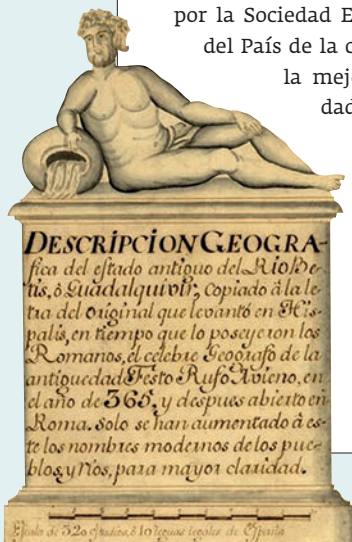 por la Sociedad E
del País de la c
la mej
dad
DESCRIPCION GEOGRA-
fica del estado antiguo del Rio Be-
tis, ô Guadalquivir, copiado â la le-
tra del original que levantó en His-
palis, en tiempo que lo poseyeron los
Romanos, el celebre Geografo de la
antiguedad Festo Rufo Avieno, en
el año de 365, y despues abierto en
Roma. Solo se han aumentado â es-
te los nombres modernos de los pue-
blos, y rios, para mayor claridad.
Escala de 320 estadios, ô 10 leguas legales de España